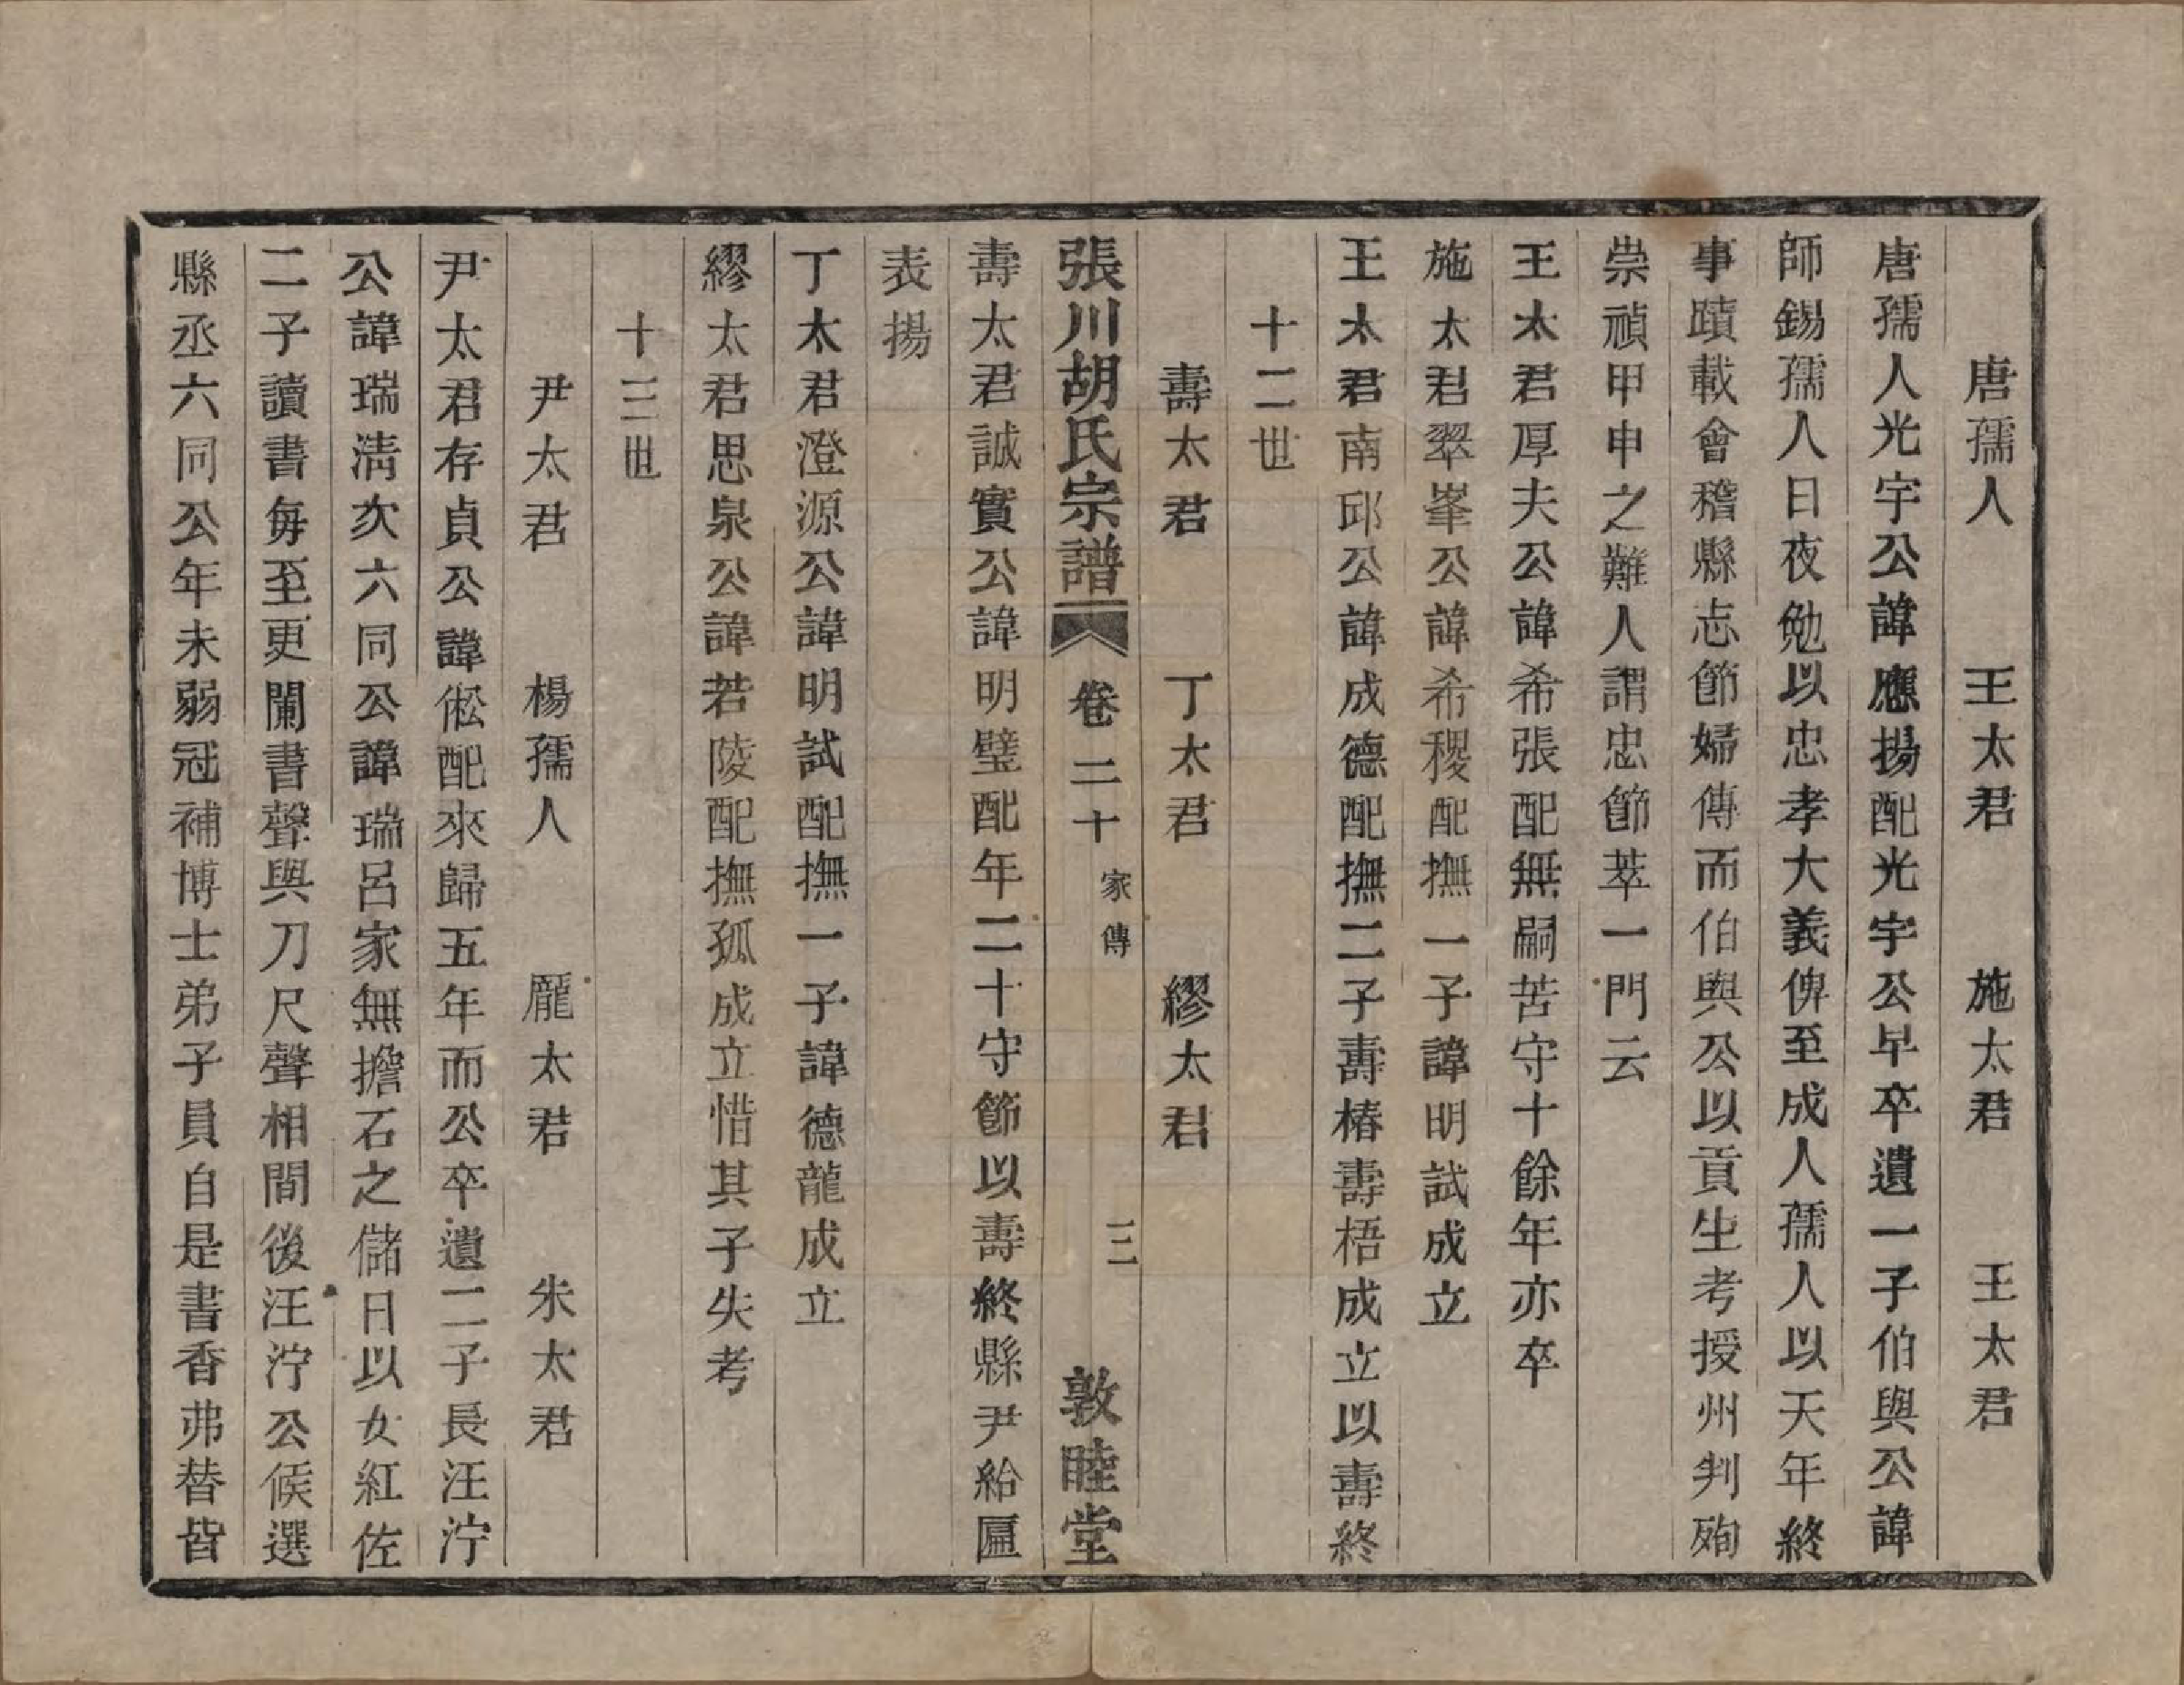 唐孺人　王太君　施太君　王太君
唐孺人光宇公諱應揚配光宇公早卒遺一子伯與公諱
師錫孺人日夜勉以忠孝大義俾至成人孺人以天年終
事蹟載會稽縣志節婦傳而伯與公以貢生考授州判殉
崇禎甲申之難人謂忠節萃一門云
王太君厚夫公諱希張配無嗣苦守十餘年亦卒
施太君翠峯公諱希稷配撫一子諱明試成立
王太君南邱公諱成德配撫二子壽椿壽梧成立以壽終
十二世
壽太君　丁太君　繆太君
張川胡氏宗譜　卷二十　家傳　三　敦睦堂
壽太君誠實公諱明璧配年二十守節以壽終縣尹給匾
表揚
丁太君澄源公諱明試配撫一子諱德龍成立
繆太君思泉公諱若陵配撫孤成立惜其子失考
十三世
尹太君　楊孺人　龎太君　朱太君
尹太君存貞公諱倯配來歸五年而公卒遺二子長汪泞
公諱瑞淸次六同公諱瑞呂家無擔石之儲日以女紅佐
二子讀書每至更闌書聲與刀尺聲相間後汪泞公候選
縣丞六同公年未弱冠補博士弟子員自是書香弗替皆